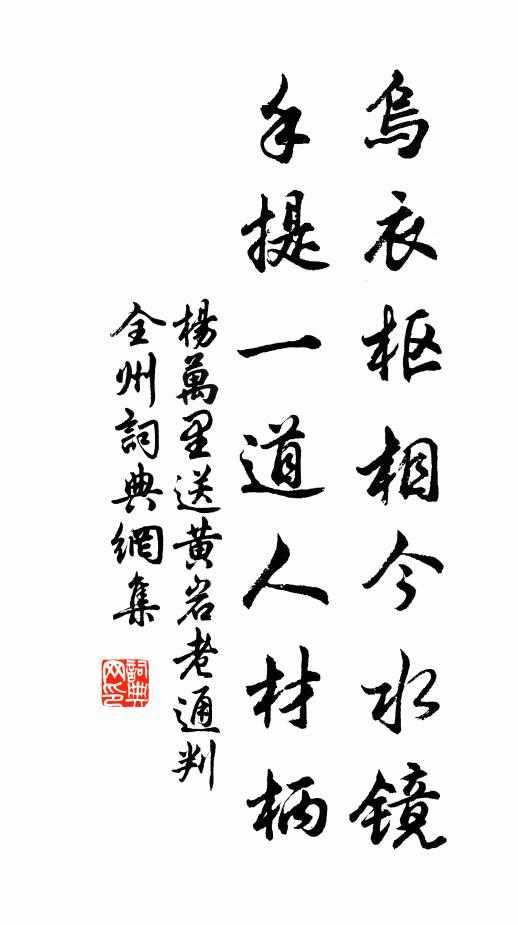 烏衣枢相今水镜
手提一道人材柄
楊萬里送黄岩老通判
全州詞典網集
詞典网印